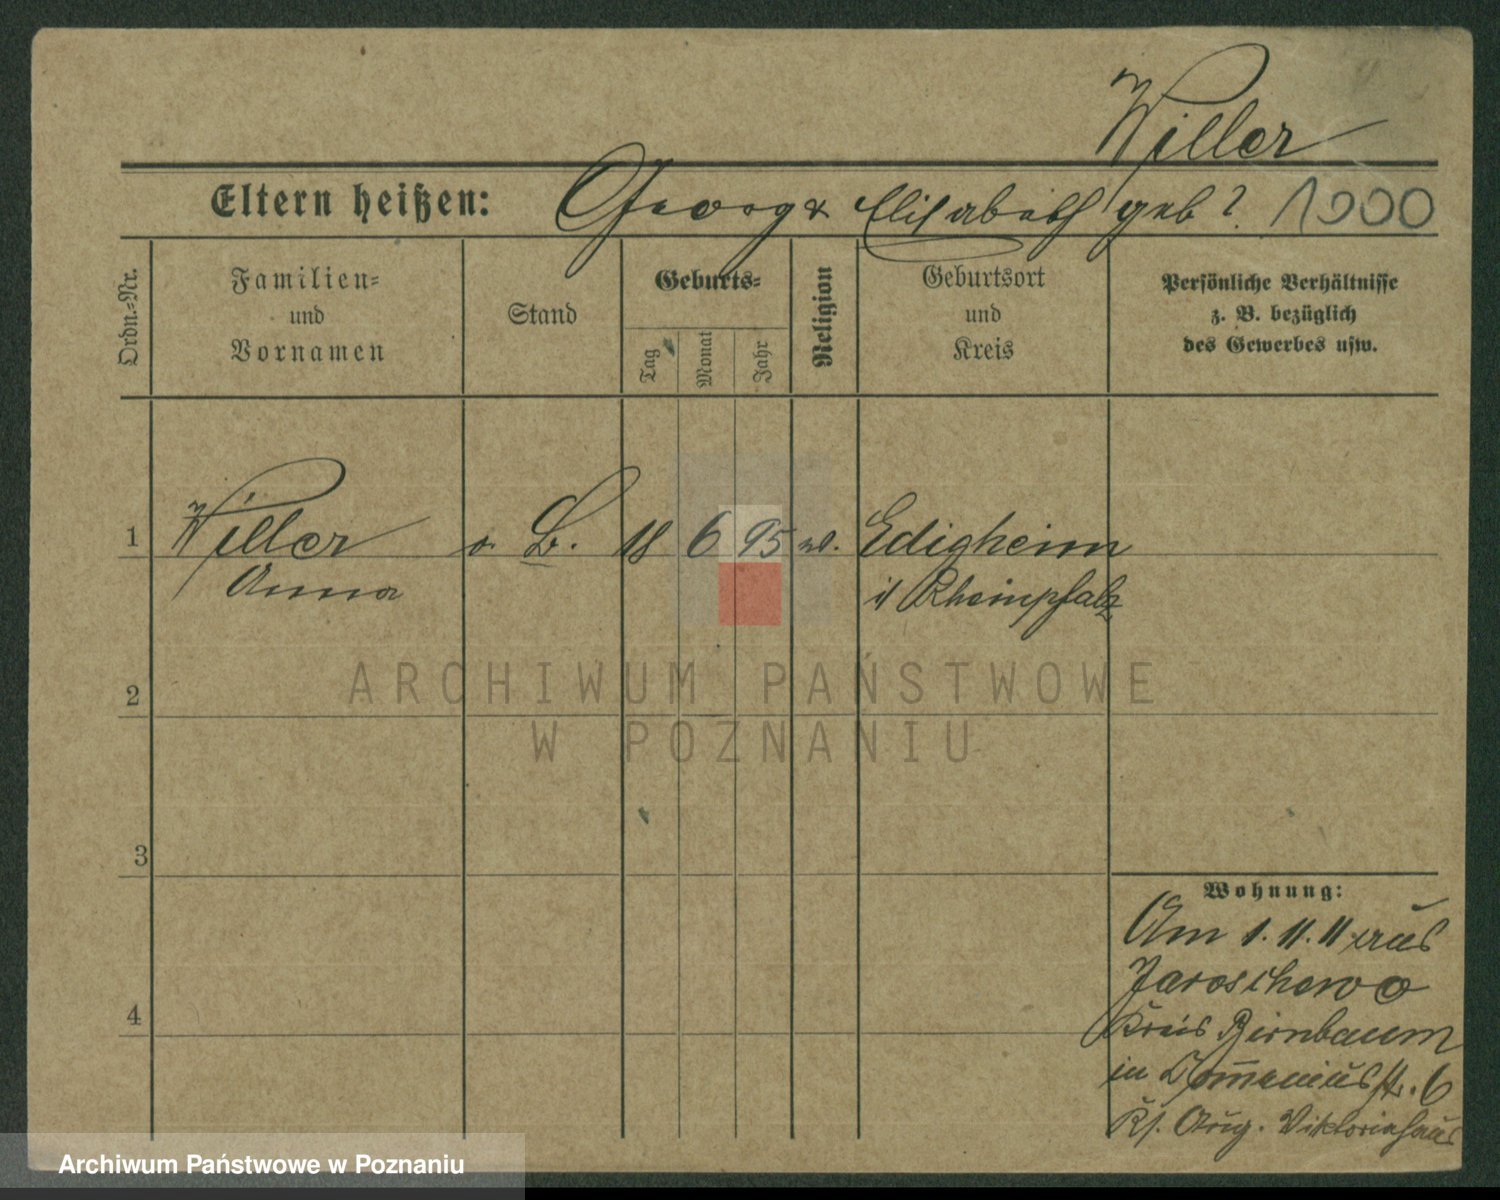 Willer
Eltern heißen: Georg & Elisabeth geb? 1000
Ordn.=Nr.
Familien=
und
Vornamen
Stand
Geburts=
Tag
Monat
Jahr
Religion
Geburtsort
und
Kreis
Persönliche Verhältnisse
z. B. bezüglich
des Gewerbes usw.
1 Willer o. B. 18 6 95 Edigheim
Anna i/ Rheinpfalz
2
3
4
Wohnung:
Am 1. 11. 11 aus
Jaroschewo
Kreis Birnbaum
in Comeniusstr. 6
Ks. Aug. Viktoriahaus
ARCHIWUM PAŃSTWOWE
W POZNANIU
Archiwum Państwowe w Poznaniu